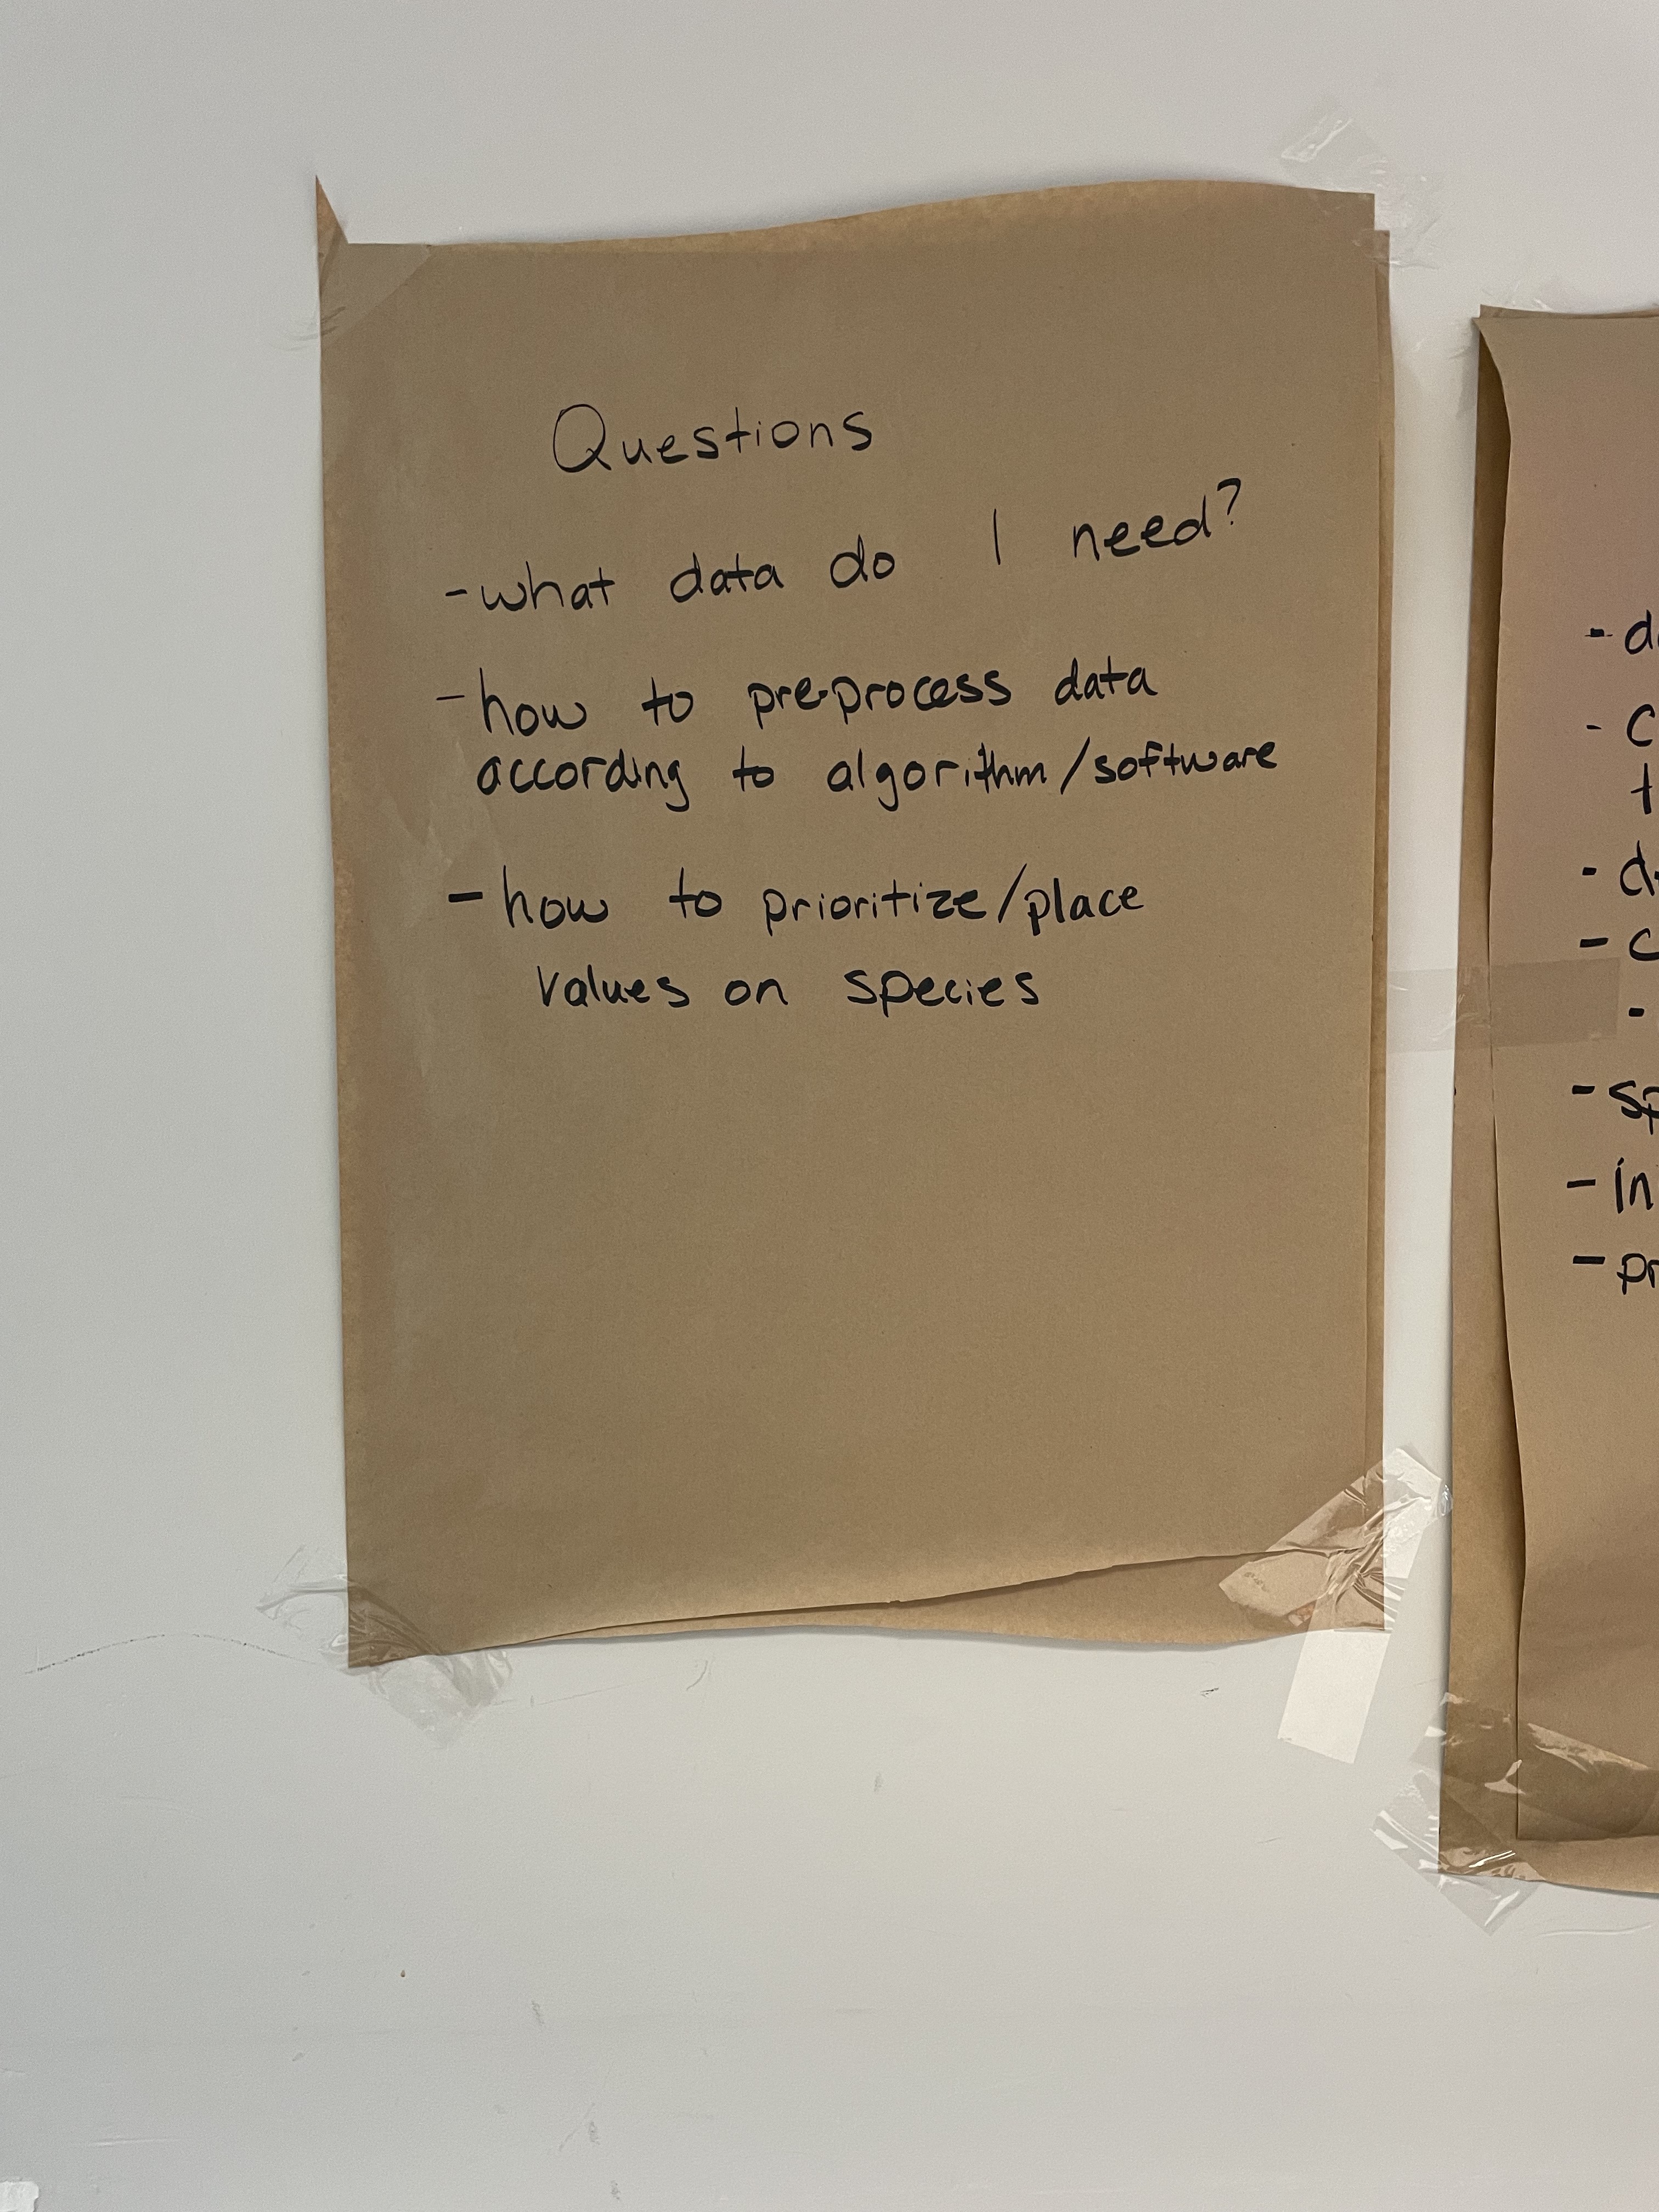 Questions
- what data do I need?
- how to pre-process data
according to algorithm/software
- how to prioritize/place
values on species